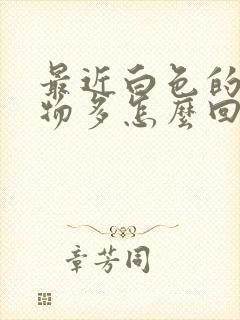 最近白色的
物多怎麼回
章芳同